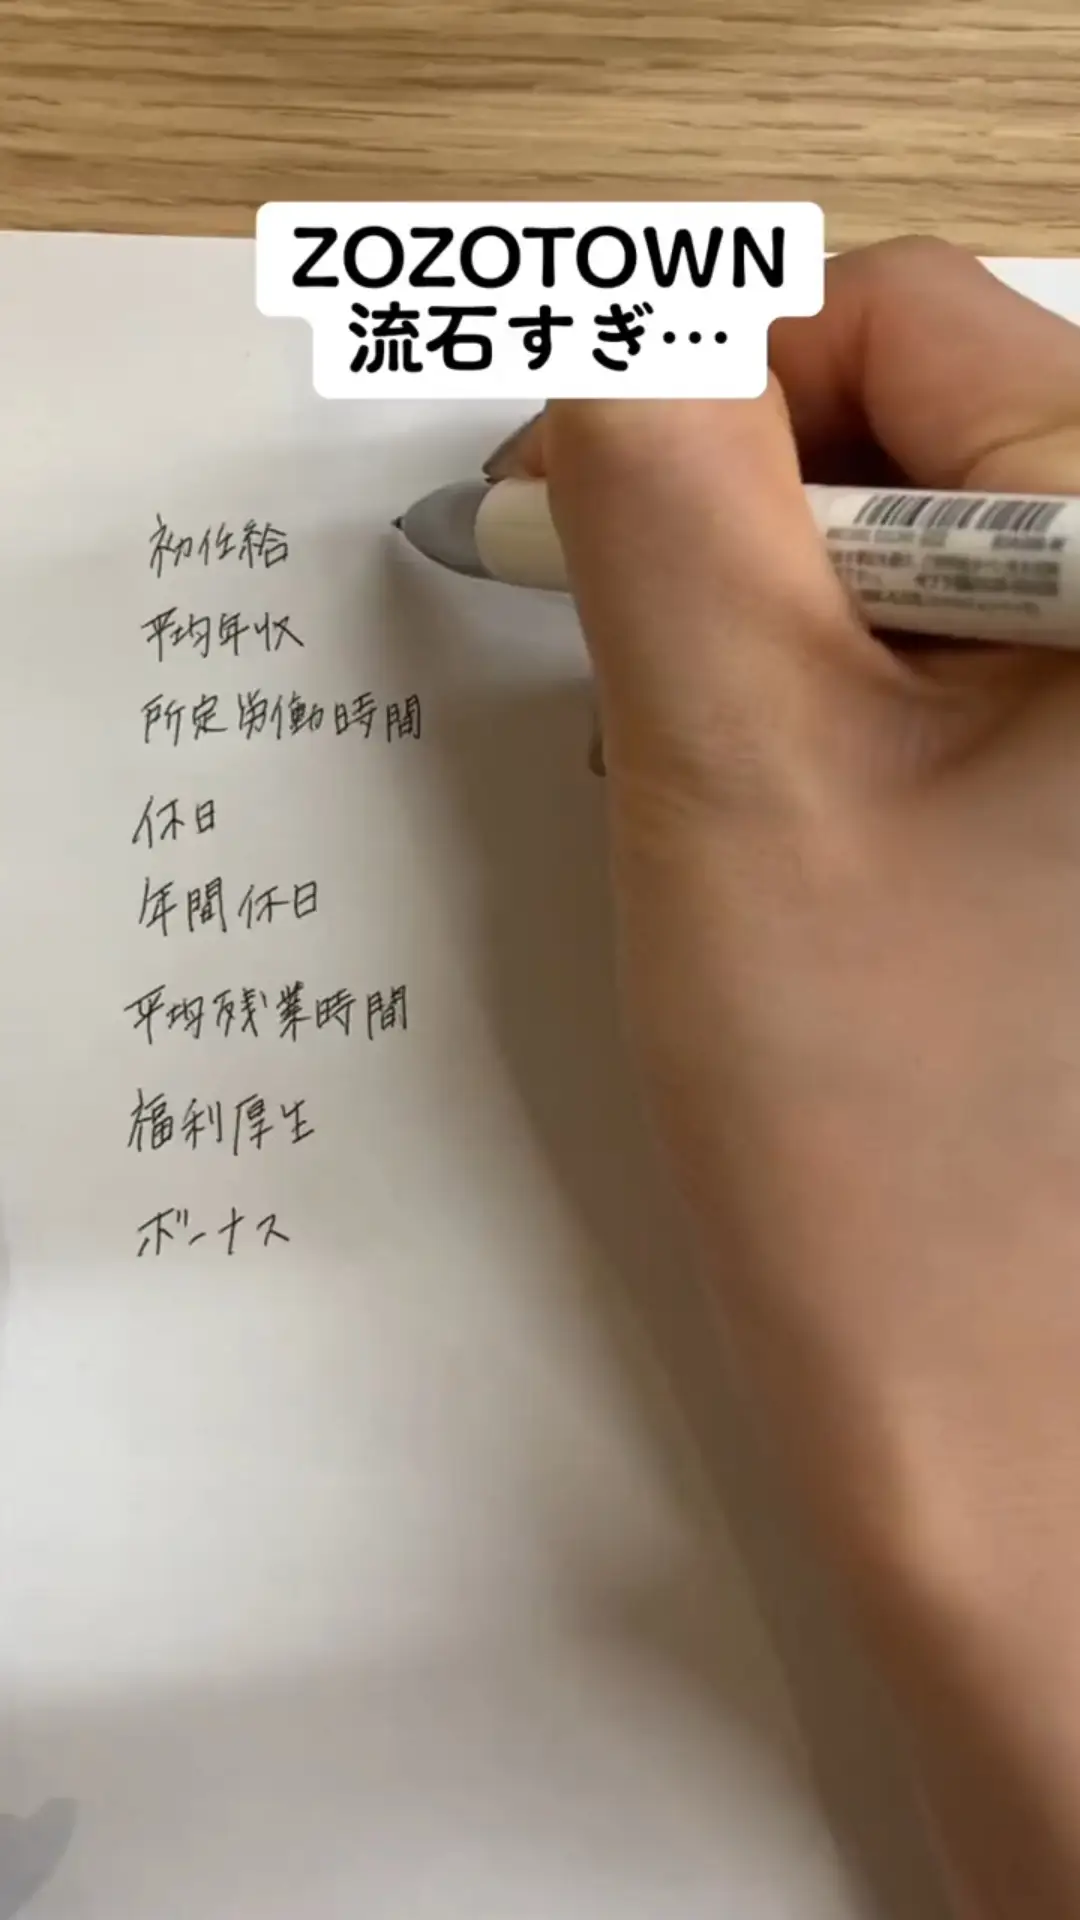 ZOZOTOWN
流石すぎ…
初任給
平均年収
所定労働時間
休日
年間休日
平均残業時間
福利厚生
ボーナス